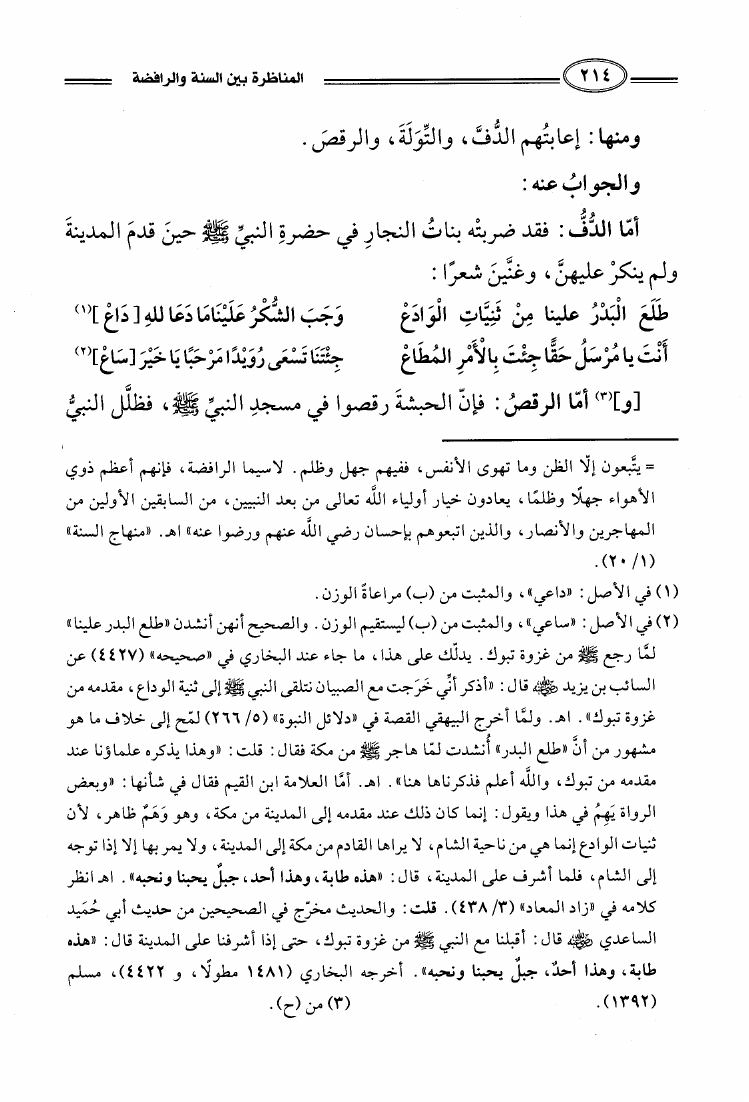 ٢١٤ المناظرة بين السنة والرافضة
ومنها: إعابتُهم الدُّفَّ، والتِّوَلَةَ، والرقصَ.
والجوابُ عنه:
أمّا الدُّفُّ: فقد ضربتْه بناتُ النجارِ في حضرةِ النبيِّ ﷺ حينَ قدمَ المدينةَ
ولم ينكرْ عليهنَّ، وغنَّينَ شعرًا:
طَلَعَ الْبَدْرُ علينا مِنْ ثَنِيَّاتِ الْوَادَعْ وَجَبَ الشُّكْرُ عَلَيْنَا مَا دَعَا للهِ [دَاعْ](١)
أَنْتَ يا مُرْسَلُ حَقًّا جِئْتَ بِالْأَمْرِ المُطَاعْ جِئْتَنَا تَسْعَى رُوَيْدًا مَرْحَبًا يَا خَيْرَ [سَاعْ](٢)
[و](٣) أمّا الرقصُ: فإنّ الحبشةَ رقصوا في مسجدِ النبيِّ ﷺ، فظلَّل النبيُّ
= يتَّبعون إلَّا الظن وما تهوى الأنفس، ففيهم جهل وظلم. لاسيما الرافضة، فإنهم أعظم ذوي
الأهواء جهلًا وظلمًا، يعادون خيار أولياء اللَّه تعالى من بعد النبيين، من السابقين الأولين من
المهاجرين والأنصار، والذين اتبعوهم بإحسان رضي اللَّه عنهم ورضوا عنه» اهـ. «منهاج السنة»
(١/ ٢٠).
(١) في الأصل: «داعي»، والمثبت من (ب) مراعاةً الوزن.
(٢) في الأصل: «ساعي»، والمثبت من (ب) ليستقيم الوزن. والصحيح أنهن أنشدن «طلع البدر علينا»
لمَّا رجع ﷺ من غزوة تبوك. يدلّك على هذا، ما جاء عند البخاري في «صحيحه» (٤٤٢٧) عن
السائب بن يزيد رضي الله عنه قال: «أذكر أنِّي خَرَجت مع الصبيان نتلقى النبي ﷺ إلى ثنية الوداع، مقدمه من
غزوة تبوك». اهـ. ولمَّا أخرج البيهقي القصة في «دلائل النبوة» (٥/ ٢٦٦) لمّح إلى خلاف ما هو
مشهور من أنَّ «طلع البدر» أُنشدت لمّا هاجر ﷺ من مكة فقال: قلت: «وهذا يذكره علماؤنا عند
مقدمه من تبوك، واللَّه أعلم فذكرناها هنا». اهـ. أمَّا العلامة ابن القيم فقال في شأنها: «وبعض
الرواة يَهِمُ في هذا ويقول: إنما كان ذلك عند مقدمه إلى المدينة من مكة، وهو وَهَمٌ ظاهر، لأن
ثنيات الوادع إنما هي من ناحية الشام، لا يراها القادم من مكة إلى المدينة، ولا يمر بها إلا إذا توجه
إلى الشام، فلما أشرف على المدينة، قال: «هذه طابة، وهذا أحد، جبلٌ يحبنا ونحبه». اهـ انظر
كلامه في «زاد المعاد» (٣/ ٤٣٨). قلت: والحديث مخرّج في الصحيحين من حديث أبي حُمَيد
الساعدي رضي الله عنه قال: أقبلنا مع النبي ﷺ من غزوة تبوك، حتى إذا أشرفنا على المدينة قال: «هذه
طابة، وهذا أحدٌ، جبلٌ يحبنا ونحبه». أخرجه البخاري (١٤٨١ مطولًا، و ٤٤٢٢)، مسلم
(١٣٩٢). (٣) من (ح).